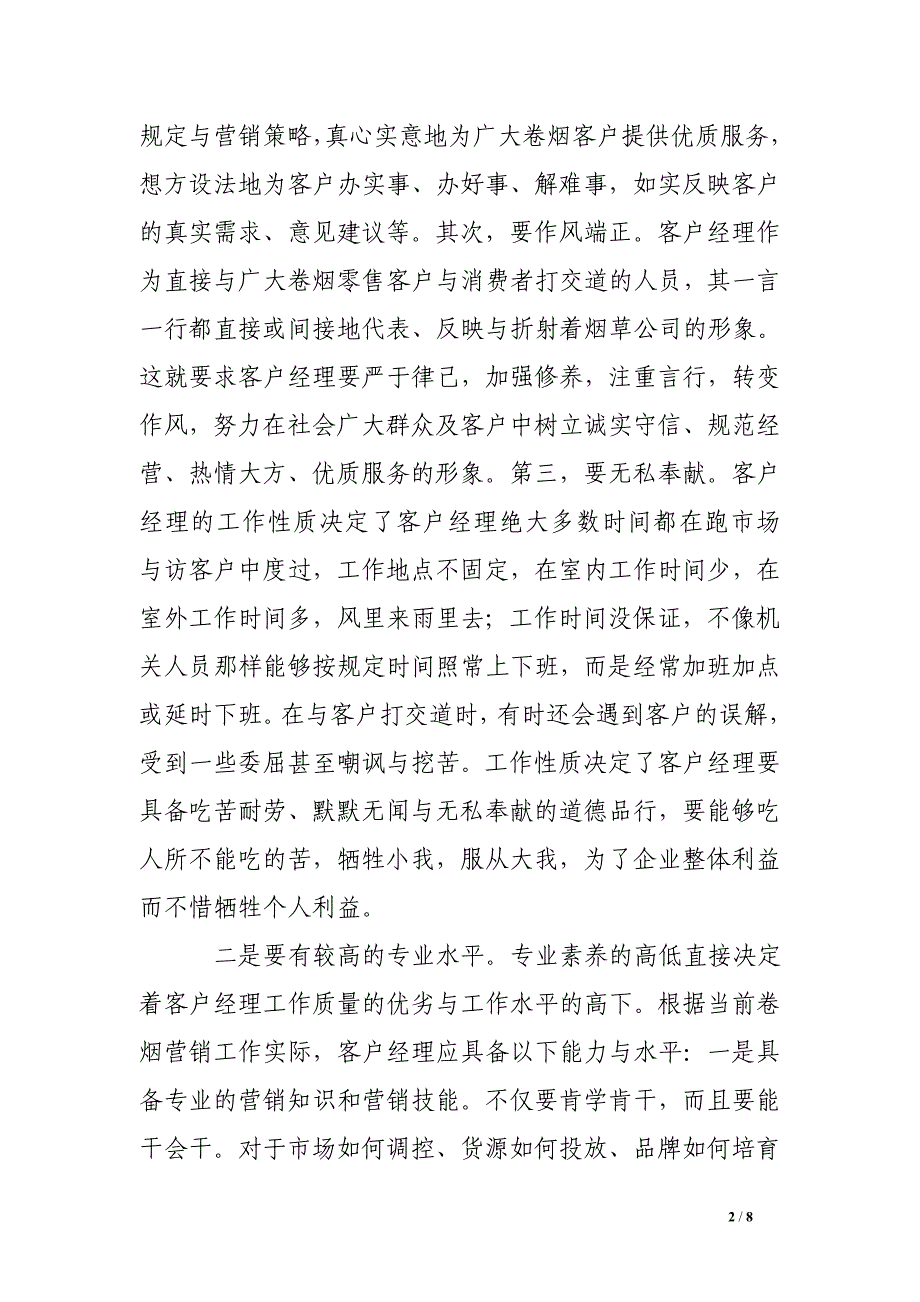 规定与营销策略，真心实意地为广大卷烟客户提供优质服务，
想方设法地为客户办实事、办好事、解难事，如实反映客户
的真实需求、意见建议等。其次，要作风端正。客户经理作
为直接与广大卷烟零售客户与消费者打交道的人员，其一言
一行都直接或间接地代表、反映与折射着烟草公司的形象。
这就要求客户经理要严于律己，加强修养，注重言行，转变
作风，努力在社会广大群众及客户中树立诚实守信、规范经
营、热情大方、优质服务的形象。第三，要无私奉献。客户
经理的工作性质决定了客户经理绝大多数时间都在跑市场
与访客户中度过，工作地点不固定，在室内工作时间少，在
室外工作时间多，风里来雨里去；工作时间没保证，不像机
关人员那样能够按规定时间照常上下班，而是经常加班加点
或延时下班。在与客户打交道时，有时还会遇到客户的误解，
受到一些委屈甚至嘲讽与挖苦。工作性质决定了客户经理要
具备吃苦耐劳、默默无闻与无私奉献的道德品行，要能够吃
人所不能吃的苦，牺牲小我，服从大我，为了企业整体利益
而不惜牺牲个人利益。
二是要有较高的专业水平。专业素养的高低直接决定
着客户经理工作质量的优劣与工作水平的高下。根据当前卷
烟营销工作实际，客户经理应具备以下能力与水平：一是具
备专业的营销知识和营销技能。不仅要肯学肯干，而且要能
干会干。对于市场如何调控、货源如何投放、品牌如何培育
2 / 8